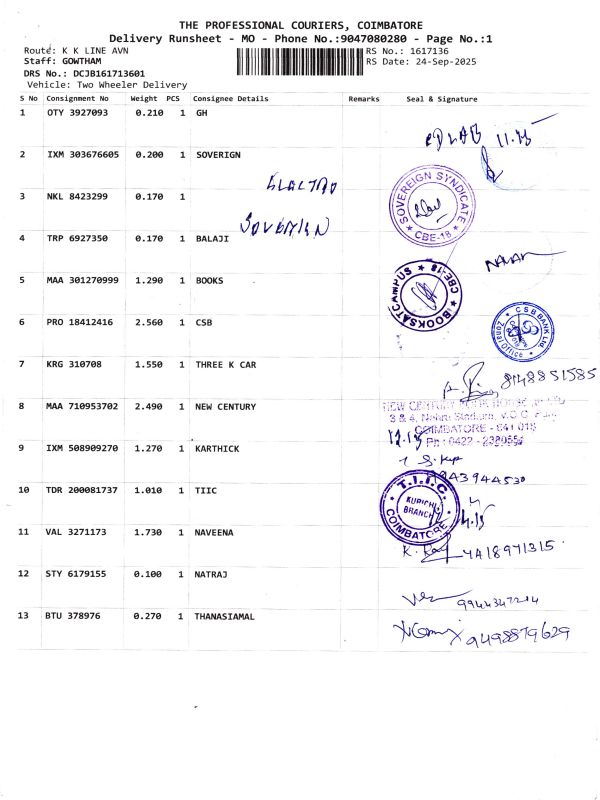 THE PROFESSIONAL COURIERS, COIMBATORE
Delivery Runsheet - MO - Phone No.:9047080280 - Page No.:1
Route: K K LINE AVN RS No.: 1617136
Staff: GOWTHAM RS Date: 24-Sep-2025
DRS No.: DCJB161713601
Vehicle: Two Wheeler Delivery
S No Consignment No Weight PCS Consignee Details Remarks Seal & Signature
1 OTY 3927093 0.210 1 GH
11.15
2 IXM 303676605 0.200 1 SOVERIGN
SOVEREIGN SYNDICATE
CBE-18
3 NKL 8423299 0.170 1
4 TRP 6927350 0.170 1 BALAJI
5 MAA 301270999 1.290 1 BOOKS
BOOKSATCAMPUS CBE-18
6 PRO 18412416 2.560 1 CSB
CSB BANK Ltd.
Zonal Office
7 KRG 310708 1.550 1 THREE K CAR
8148851585
8 MAA 710953702 2.490 1 NEW CENTURY
NEW CENTURY
3 & 4, Nehru Stadium, V.O.C.
COIMBATORE - 641 018
12.15 Ph : 0422 -
9 IXM 508909270 1.270 1 KARTHICK
10 TDR 200081737 1.010 1 TIIC
T.I.I.C.
KURICHI
BRANCH
COIMBATORE
11 VAL 3271173 1.730 1 NAVEENA
12 STY 6179155 0.100 1 NATRAJ
13 BTU 378976 0.270 1 THANASIAMAL
9498879629